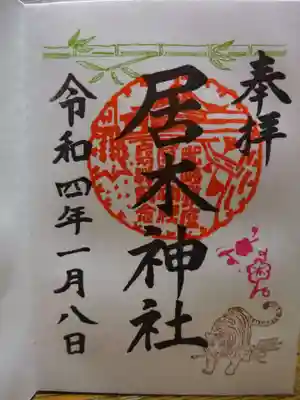 奉拝
居木神社
令和四年一月八日